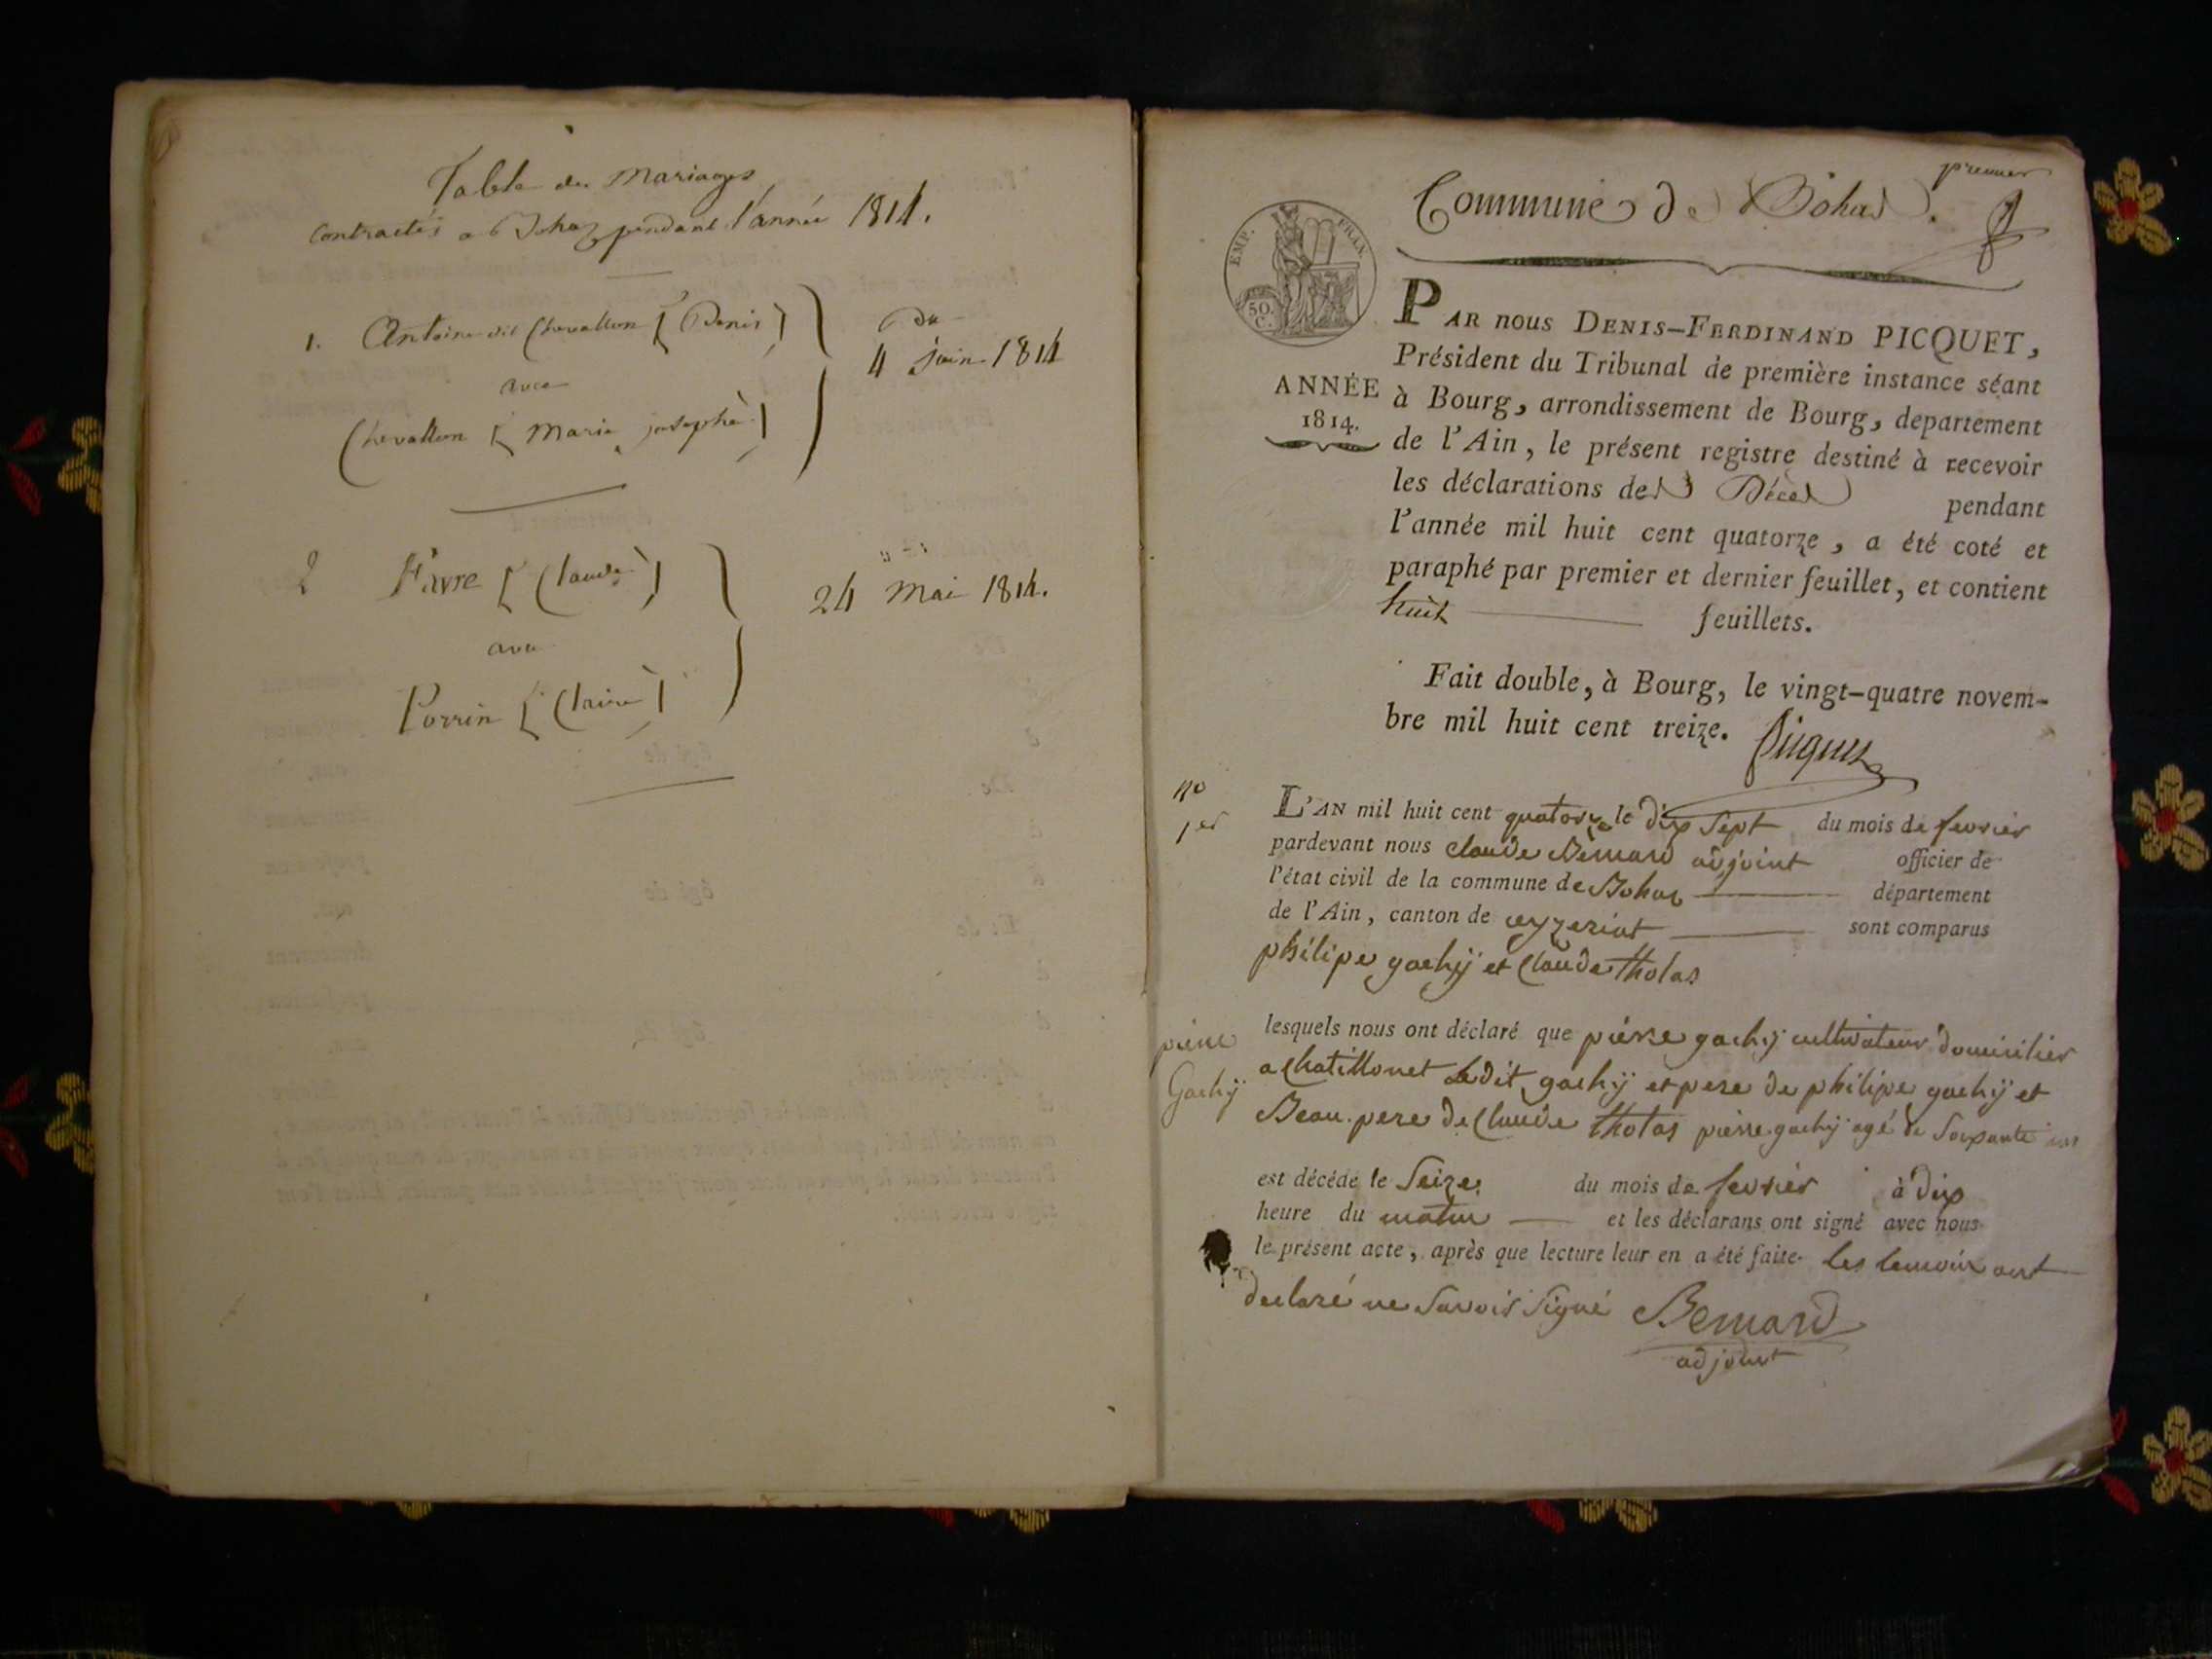 Table des Mariages
Contractés a Bohaz pendant l'année 1814.
1. Antoine dit Chevallon [Denis]
Du
4 juin 1814
avec
Chevallon [Marie josephe]
2 Favre [Claude]
24 Mai 1814.
avec
Perrin [Claire]
premier
Commune de Bohas.
EMP. FRAN.
50.
C.
ANNÉE
1814.
PAR nous DENIS-FERDINAND PICQUET,
Président du Tribunal de première instance séant
à Bourg, arrondissement de Bourg, departement
de l'Ain, le présent registre destiné à recevoir
les déclarations des Décès pendant
l'année mil huit cent quatorze, a été coté et
paraphé par premier et dernier feuillet, et contient
huit feuillets.
Fait double, à Bourg, le vingt-quatre novem-
bre mil huit cent treize. Picquet
No
1er
L'AN mil huit cent quatorze le dix sept du mois de fevrier
pardevant nous claude Bernard adjoint officier de
l'état civil de la commune de Bohas département
de l'Ain, canton de ceyzeriat sont comparus
philipe gachy et Claude tholas
pierre
Gachy
lesquels nous ont déclaré que pierre gachy cultivateur domicilier
a Chatillonet ledit gachy et pere de philipe gachy et
Beau-pere de Claude tholas pierre gachy agé de soixante ans
est décédé le Seize du mois de fevrier à dix
heure du matin et les déclarans ont signé avec nous
le présent acte, après que lecture leur en a été faite. les temoins ont
declaré ne savoir signé Bernard
adjoint